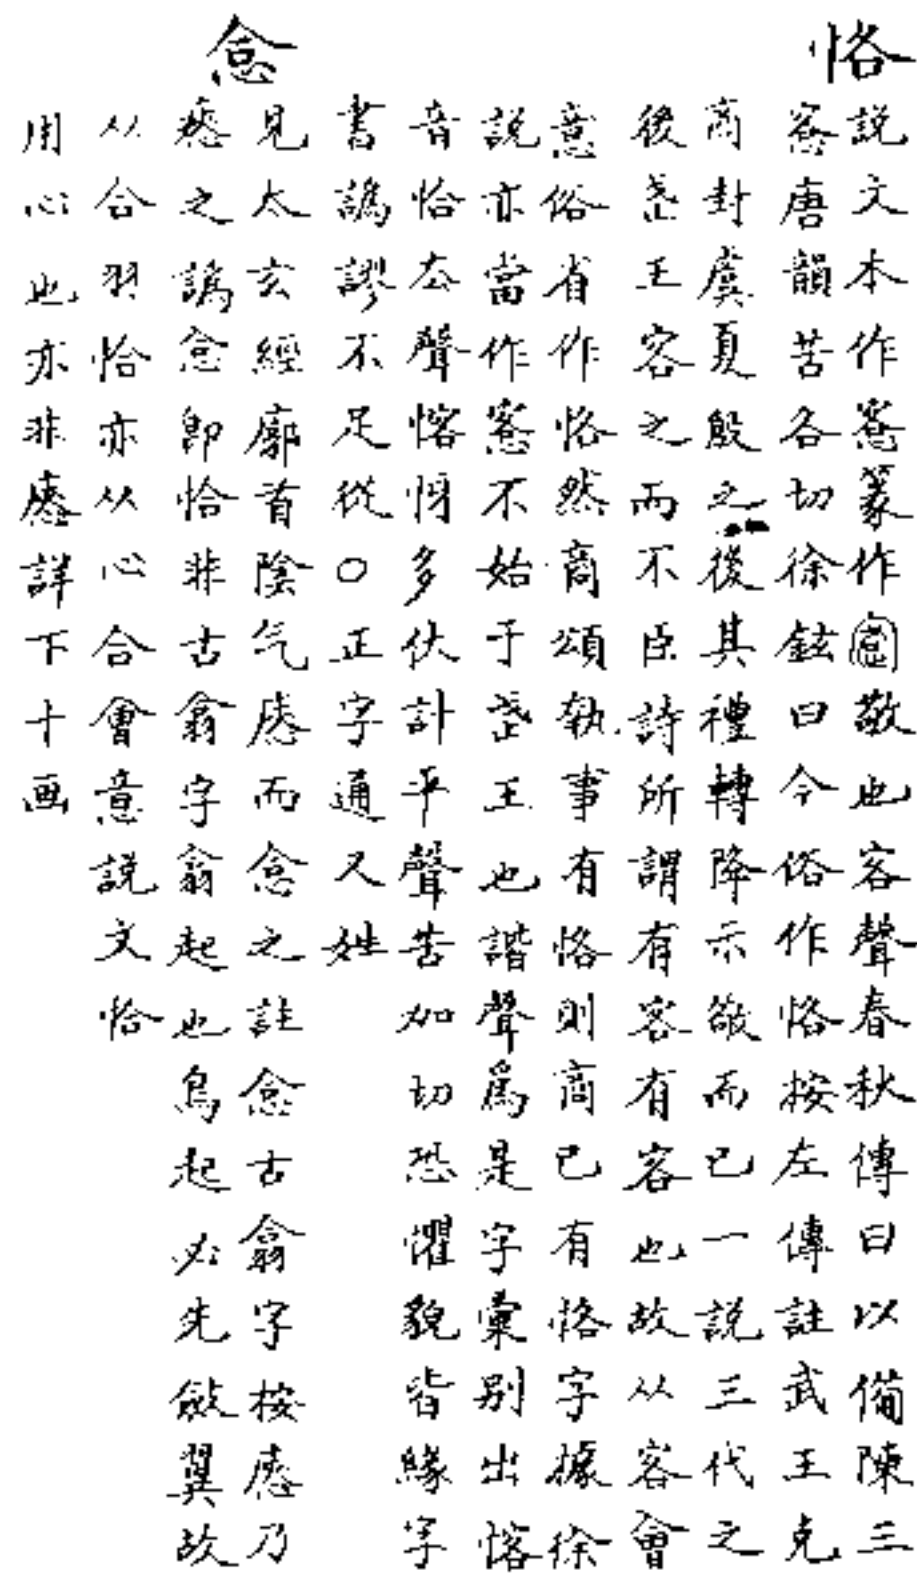 恪
説文本作愙篆作愙敬也客聲春秋傳曰以備陳三
愙唐韻苦各切徐鉉曰今俗作恪按左傳註武王克
商封虞夏殷之後其禮轉降示敬而已一説三代之
後周王客之而不臣詩所謂有客有客也故从客會
意俗省作恪然商頌執事有恪則商已有恪字據徐
説亦當作愙不始于周王也諧聲爲是字彙别出㤩
音恰厺聲㤩㤉多伏計平聲苦加切恐懼貌皆緣字
書譌謬不足從〇正字通又姓
念
見太玄經廓首陰气瘱而念之註念古翕字按瘱乃
瘱之譌念卽恰非古翕字翕起也鳥起必先斂翼故
从合羽恰亦从心合會意説文恰
用心也亦非瘱詳下十画